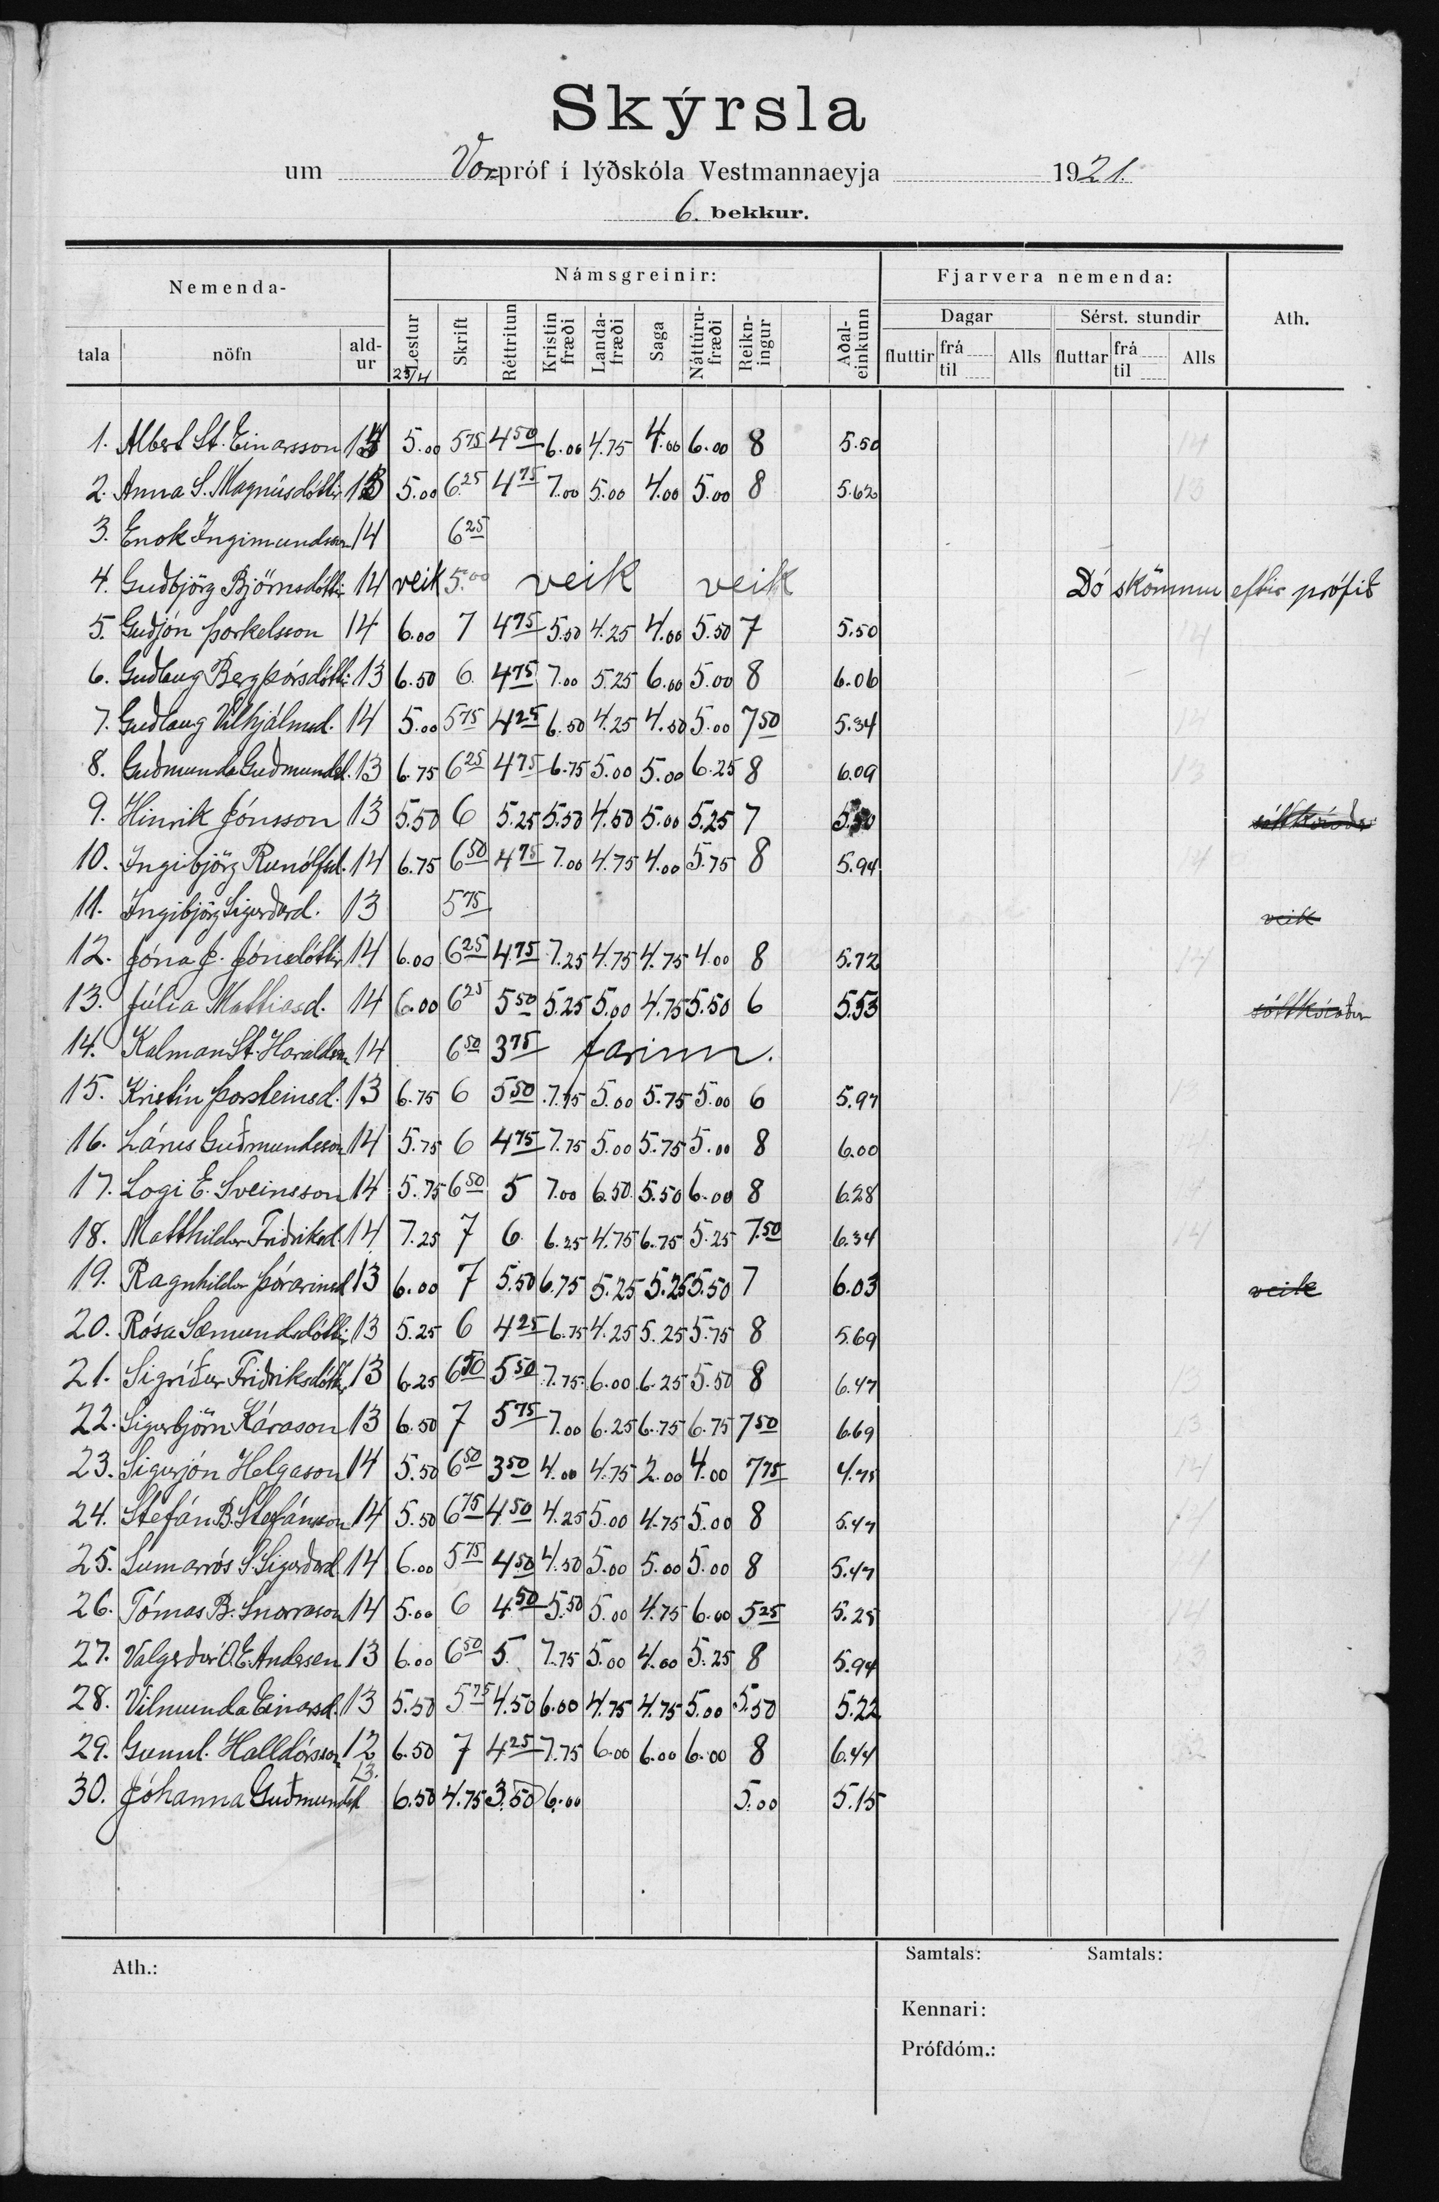 Skýrsla
um Vorpróf í lýðskóla Vestmannaeyja 1921.
6. bekkur.
Nemenda- Námsgreinir: Fjarvera nemenda: Ath.
Dagar Sérst. stundir
tala nöfn aldur Lestur Skrift Réttritun Kristin fræði Landa- fræði Saga Náttúru- fræði Reikn- ingur Aðal- einkunn fluttir frá til Alls fluttar frá til Alls
23/4
1. Albert St. Einarsson 5.00 5 75 4 50 6.00 4.75 4.00 6.00 8 5.50 14
2. Anna S. Magnúsdóttir 13 5.00 6 25 4 75 7.00 5.00 4.00 5.00 8 5.62 13
3. Enok Ingimundsson 14 6 25
4. Guðbjörg Björnsdóttir 14 veik 5.00 veik veik Dó skömmu eftir prófið
5. Guðjón Þorkelsson 14 6.00 7 4 75 5.50 4.25 4.00 5.50 7 5.50 14
6. Guðlaug Bergþórsdóttir 13 6.50 6 4 75 7.00 5.25 6.00 5.00 8 6.06
7. Guðlaug Vilhjálmsd. 14 5.00 5 75 4 25 6.50 4.25 4.50 5.00 7 50 5.34 14
8. Guðmunda Guðmundsd. 13 6.75 6 25 4 75 6.75 5.00 5.00 6.25 8 6.09 13
9. Hinrik Jónsson 13 5.50 6 5.25 5.50 4.50 5.00 5.25 7 5.50
10. Ingibjörg Runólfsd. 14 6.75 6 50 4 75 7.00 4.75 4.00 5.75 8 5.94 4
11. Ingibjörg Sigurðard. 13 5 75 veik
12. Jóna J. Jónsdóttir 14 6.00 6 25 4 75 7.25 4.75 4.75 4.00 8 5.72 14
13. Júlía Mattíasd. 14 6.00 6 25 5 50 5.25 5.00 4.75 5.50 6 5.53
14. Kalman St. Haraldsson 14 6 50 3 75 farinn.
15. Kristín Þorsteinsd. 13 6.75 6 5 50 7.75 5.00 5.75 5.00 6 5.97
16. Lárus Guðmundsson 14 5.75 6 4 75 7.75 5.00 5.75 5.00 8 6.00
17. Logi E. Sveinsson 14 5.75 6 50 5 7.00 6.50 5.50 6.00 8 6.28
18. Matthildur Friðriksd. 14 7.25 7 6 6.25 4.75 6.75 5.25 7.50 6.34 14
19. Ragnhildur Þórarinsd 13 6.00 7 5.50 6.75 5.25 5.25 5.50 7 6.03 veik
20. Rósa Sæmundsdóttir 13 5.25 6 4 25 6.75 4.25 5.25 5.75 8 5.69
21. Sigríður Friðriksdóttir 13 6.25 6 50 5 50 7.75 6.00 6.25 5.50 8 6.47 13
22. Sigurbjörn Kárason 13 6.50 7 5 75 7.00 6.25 6.75 6.75 7 50 6.69 13
23. Sigurjón Helgason 14 5.50 6 50 3 50 4.00 4.75 2.00 4.00 7 75 4.75 14
24. Stefán B. Stefánsson 14 5.50 6 75 4 50 4.25 5.00 4.75 5.00 8 5.47 14
25. Sumarrós S. Sigurðard 14 6.00 5 75 4 50 4.50 5.00 5.00 5.00 8 5.47
26. Tómas B. Snorrason 14 5.00 6 4.50 5.50 5.00 4.75 6.00 5 25 5.25 14
27. Valgerður Ó. E. Andersen 13 6.00 6 50 5 7.75 5.00 4.00 5.25 8 5.94 13
28. Vilmunda Einarsd. 13 5.50 5 75 4.50 6.00 4.75 4.75 5.00 5.50 5.22
29. Gunnl. Halldórsson 12 6.50 7 4 25 7.75 6.00 6.00 6.00 8 6.44 12
13.
30. Jóhanna Guðmundsd 6.50 4.75 3.50 6.00 5.00 5.15
Ath.: Samtals: Samtals:
Kennari:
Prófdóm.: